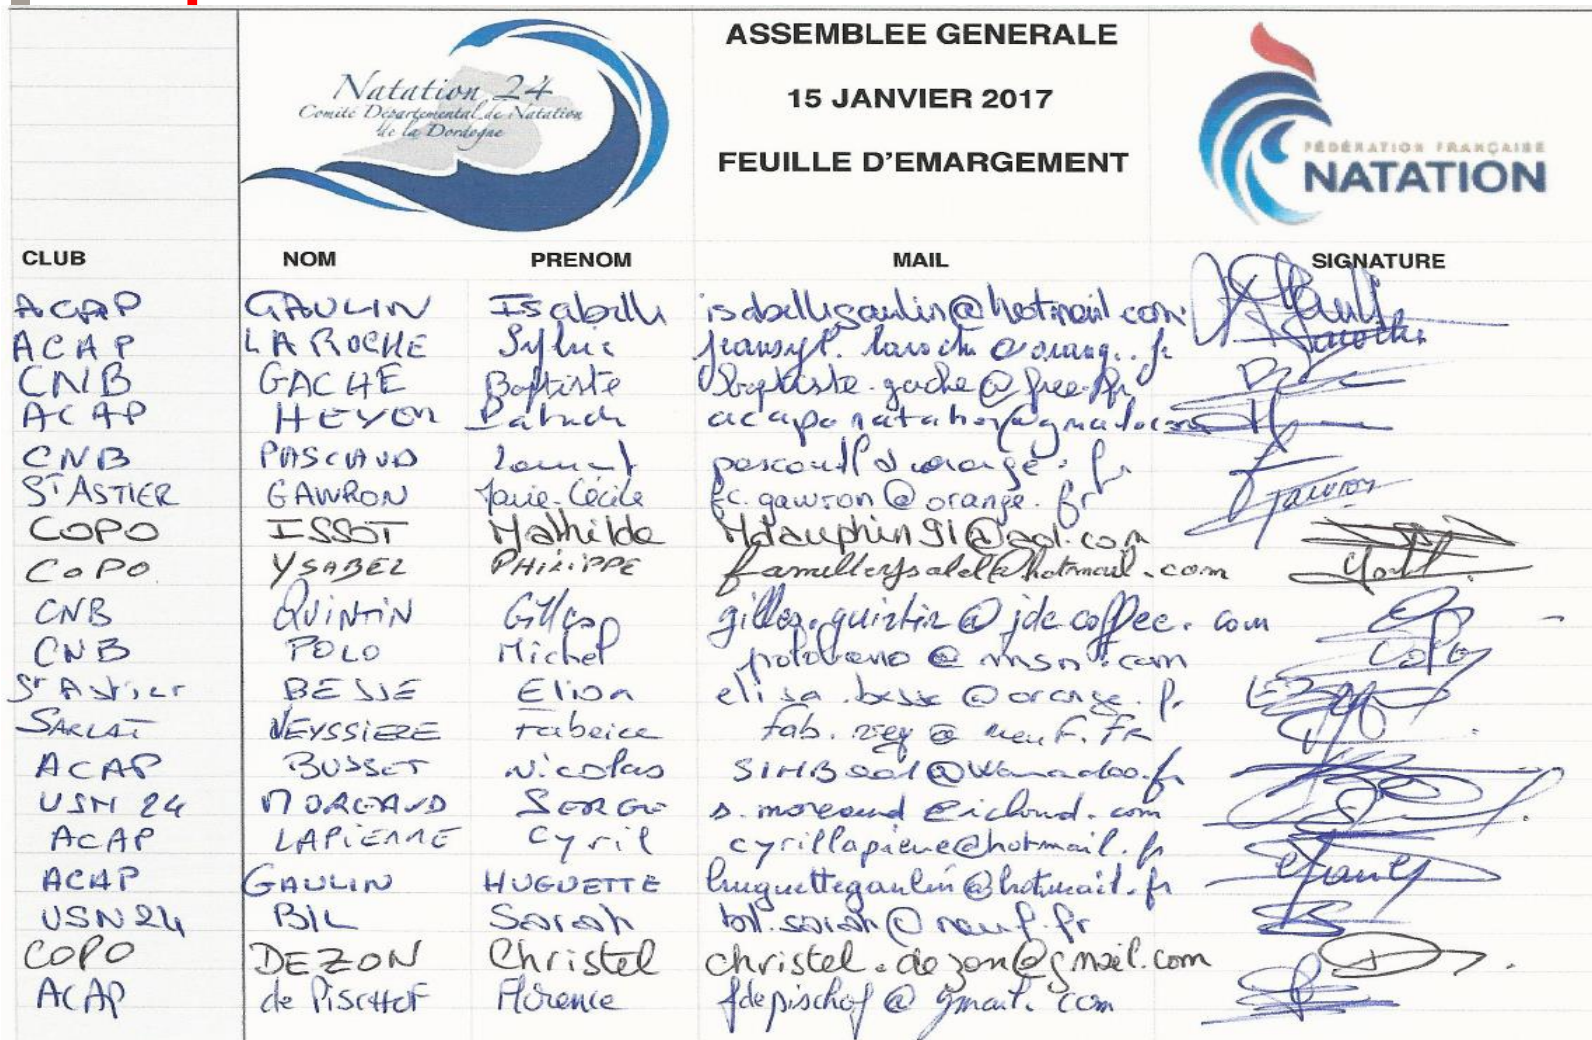 ASSEMBLEE GENERALE
15 JANVIER 2017
FEUILLE D'EMARGEMENT
Natation 24
Comité Départemental de Natation
de la Dordogne
FÉDÉRATION FRANÇAISE
NATATION
CLUB NOM PRENOM MAIL SIGNATURE
ACAP GAULIN Isabelle isabellegaulin@hotmail.com
ACAP LAROCHE Sylvie @orange.fr Laroche
CNB GACHE Baptiste baptiste.gache@free.fr
ACAP HEYER Patrick
CNB PASCAUD Laurent
ST ASTIER GAWRON Marie-Cécile fc.gawron@orange.fr Gawron
COPO ISSOT Mathilde Mdauphin91@aol.com
COPO YSABEL PHILIPPE famille.ysabel@hotmail.com
CNB QUINTIN Gilles gilles.quintin@jdecoffee.com
CNB POLO Michel @msn.com
St Astier BESSE Elisa elisa.besse@orange.fr
SARLAT VEYSSIERE Fabrice fab.vey@neuf.fr
ACAP BUSSET Nicolas @wanadoo.fr
USN 24 MOREAUD SERGE s.moreaud@icloud.com
ACAP LAPIERRE Cyril cyrillapierre@hotmail.fr
ACAP GAULIN HUGUETTE huguettegaulin@hotmail.fr
USN24 BIL Sarah bil.sarah@neuf.fr
COPO DEZON Christel christel.dezon@gmail.com
ACAP de PISCHOF Florence fdepischof@gmail.com